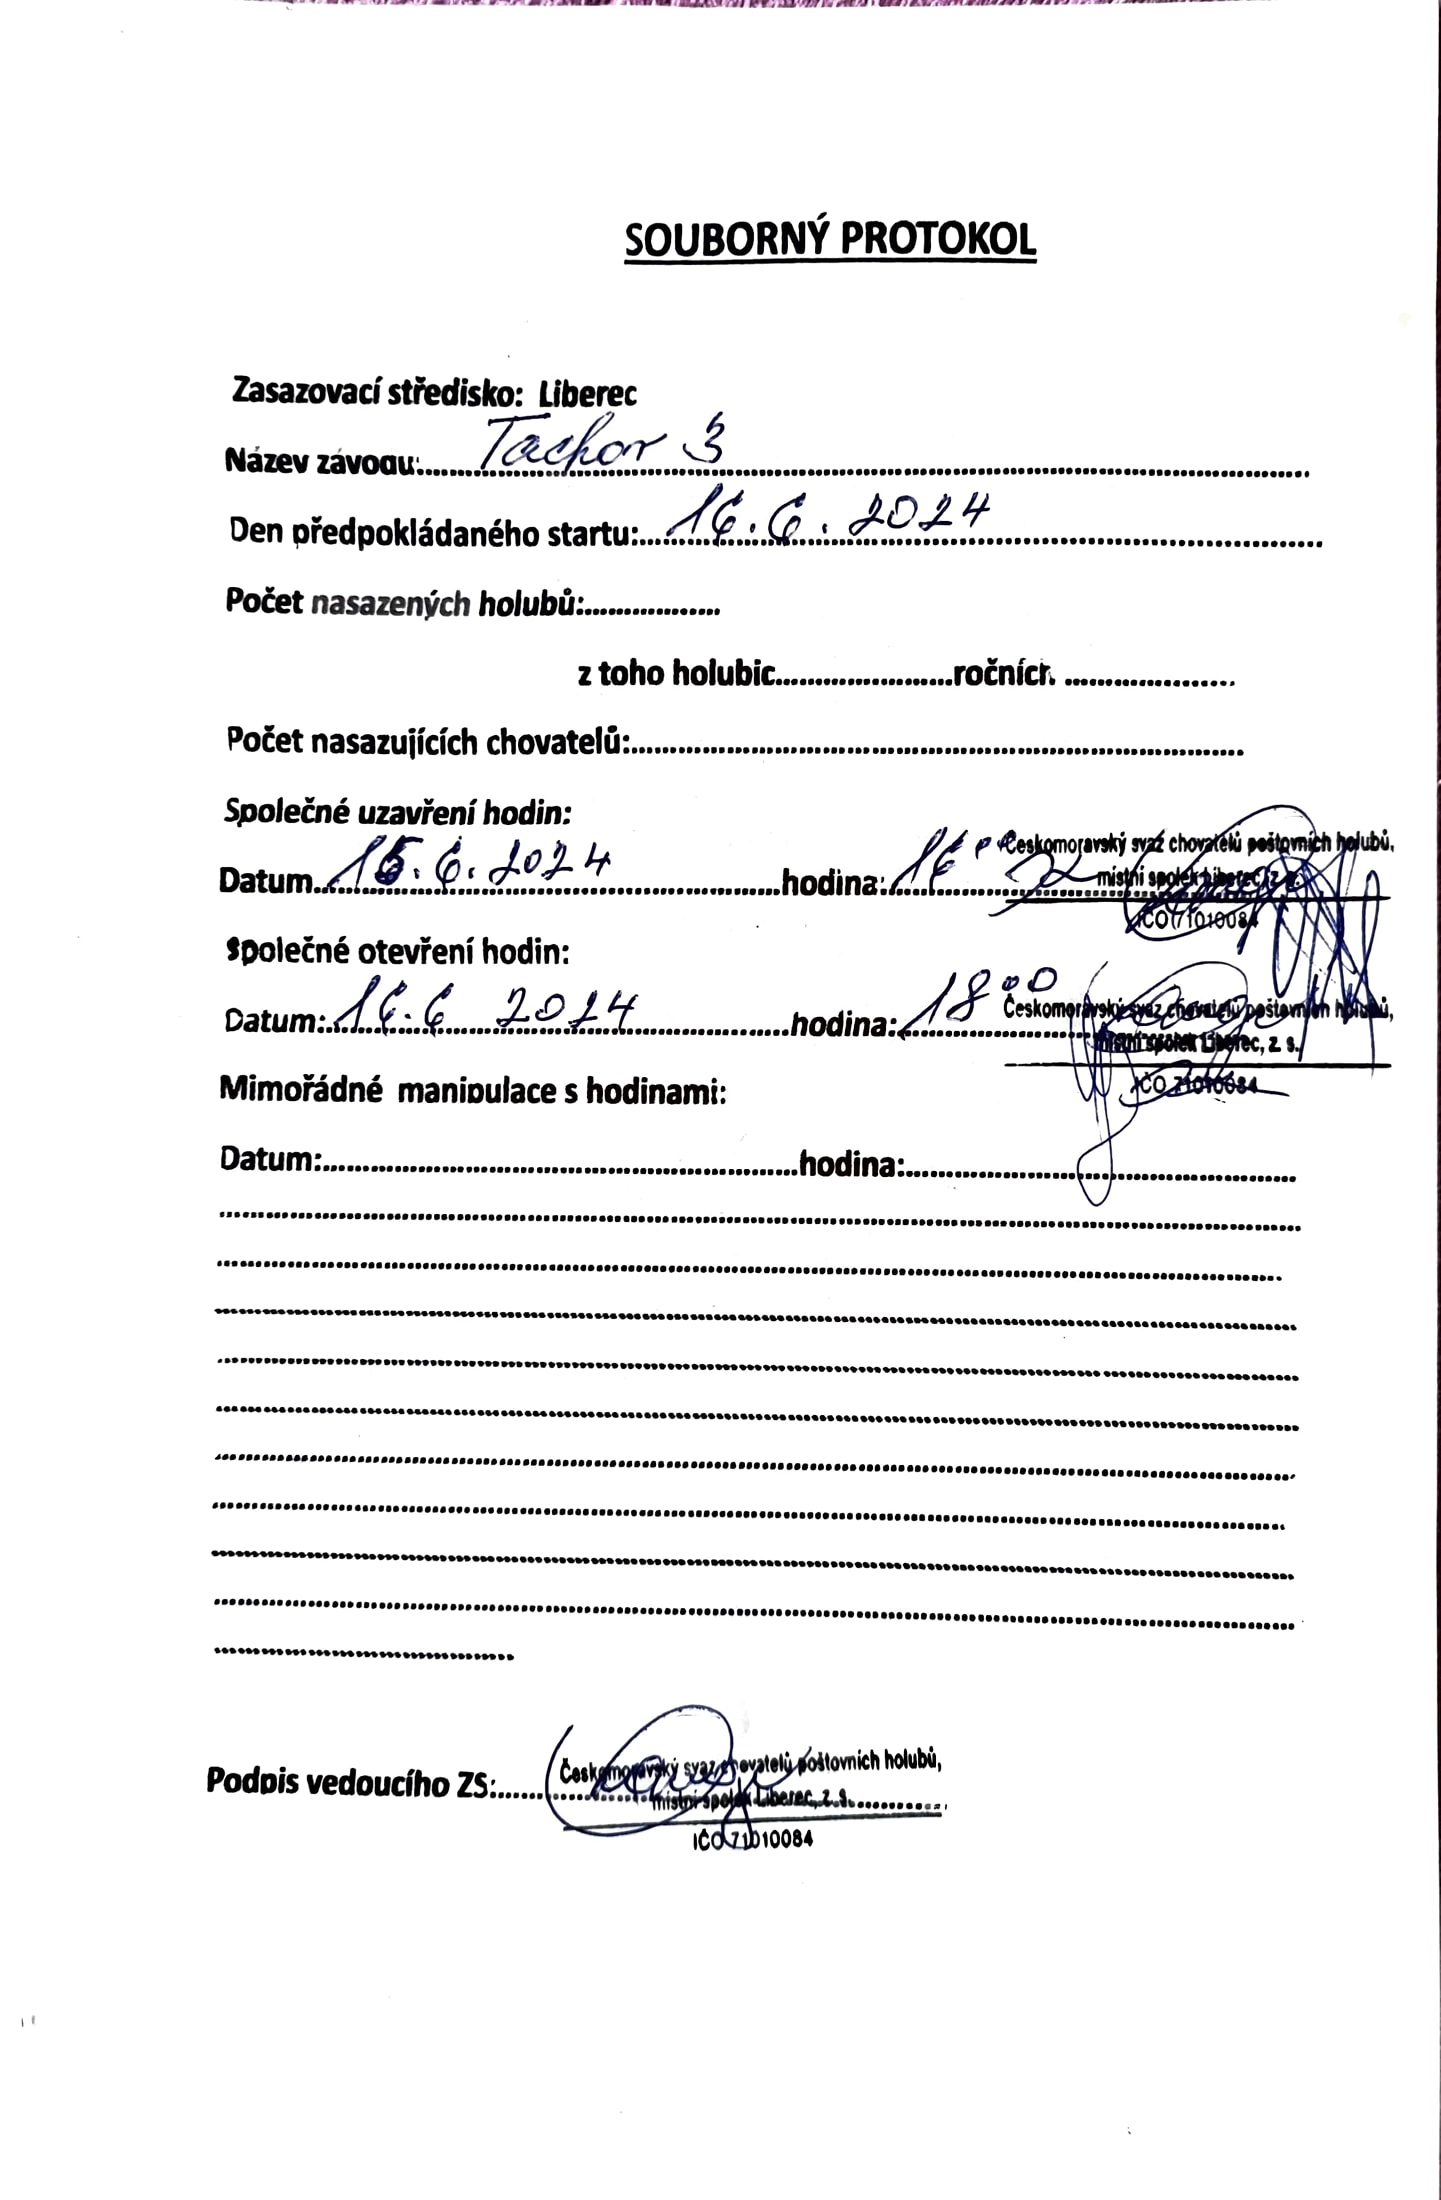 SOUBORNÝ PROTOKOL
Zasazovací středisko: Liberec
Název závodu:..........Tachov 3..........
Den předpokládaného startu:..........16.6.2024..........
Počet nasazených holubů:..................
z toho holubic......................ročních .....................
Počet nasazujících chovatelů:..........................................................
Společné uzavření hodin:
Datum..........15.6.2024..........hodina:..........16 00
Českomoravský svaz chovatelů poštovních holubů,
místní spolek Liberec, z. s.
IČO 71010084
Společné otevření hodin:
Datum:..........16.6 2024..........hodina:..........18 00
Českomoravský svaz chovatelů poštovních holubů,
místní spolek Liberec, z. s.
IČO 71010084
Mimořádné manipulace s hodinami:
Datum:..........................................................hodina:..........................................................
Podpis vedoucího ZS:..........
Českomoravský svaz chovatelů poštovních holubů,
místní spolek Liberec, z. s.
IČO 71010084